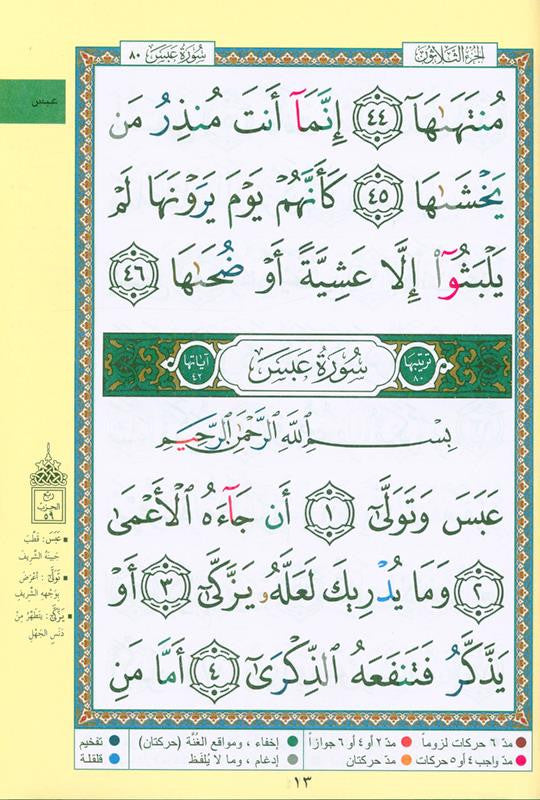 الجزء الثلاثون
سُورَةُ عَبَسَ ٨٠
عبس
مُنتَهَىٰهَآ ٤٤ إِنَّمَآ أَنتَ مُنذِرُ مَن
يَخْشَىٰهَا ٤٥ كَأَنَّهُمْ يَوْمَ يَرَوْنَهَا لَمْ
يَلْبَثُوٓا۟ إِلَّا عَشِيَّةً أَوْ ضُحَىٰهَا ٤٦
ترتيبها ٨٠ سُورَةُ عَبَسَ آياتها ٤٢
بِسْمِ ٱللَّهِ ٱلرَّحْمَٰنِ ٱلرَّحِيمِ
عَبَسَ وَتَوَلَّىٰٓ ١ أَن جَآءَهُ ٱلْأَعْمَىٰ
٢ وَمَا يُدْرِيكَ لَعَلَّهُۥ يَزَّكَّىٰٓ ٣ أَوْ
يَذَّكَّرُ فَتَنفَعَهُ ٱلذِّكْرَىٰٓ ٤ أَمَّا مَنِ
ربع
الحزب
٥٩
عَبَسَ: قَطَّبَ
جَبِينَهُ الشَّرِيفَ
تَوَلَّىٰ: أعْرَضَ
بِوَجْهِهِ الشَّرِيفِ
يَزَّكَّىٰ: يَتَطَهَّرُ مِنْ
دَنَسِ الجَهْلِ
مدّ ٦ حركات لزوماً مدّ ٢ أو ٤ أو ٦ جوازاً إخفاء ، ومواقع الغُنَّة (حركتان) تفخيم
مدّ واجب ٤ أو ٥ حركات مدّ حركتان إدغام ، وما لا يُلفَظ قلقلة
١٣